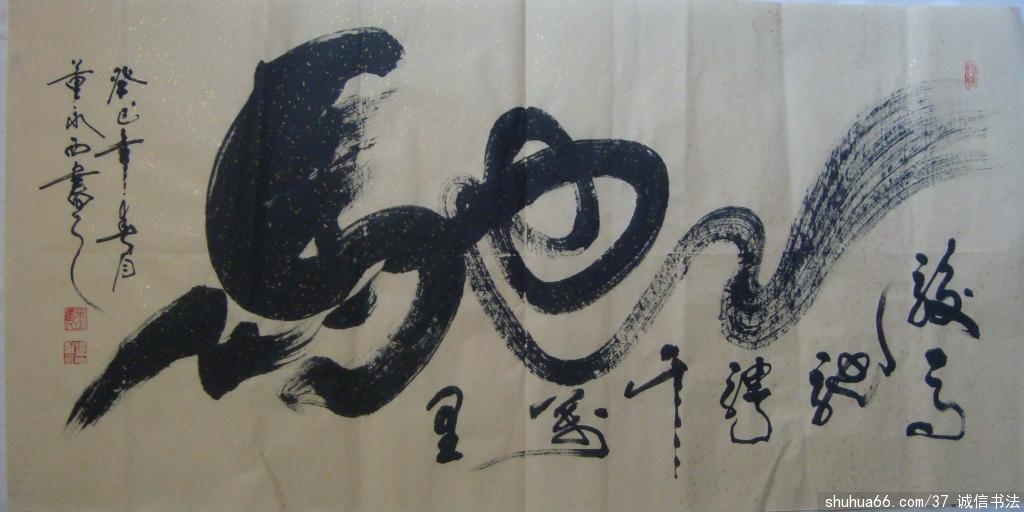 駿馬
馳
騁
千
萬
里
癸巳年春月
董永西書
shuhua66.com/37 诚信书法